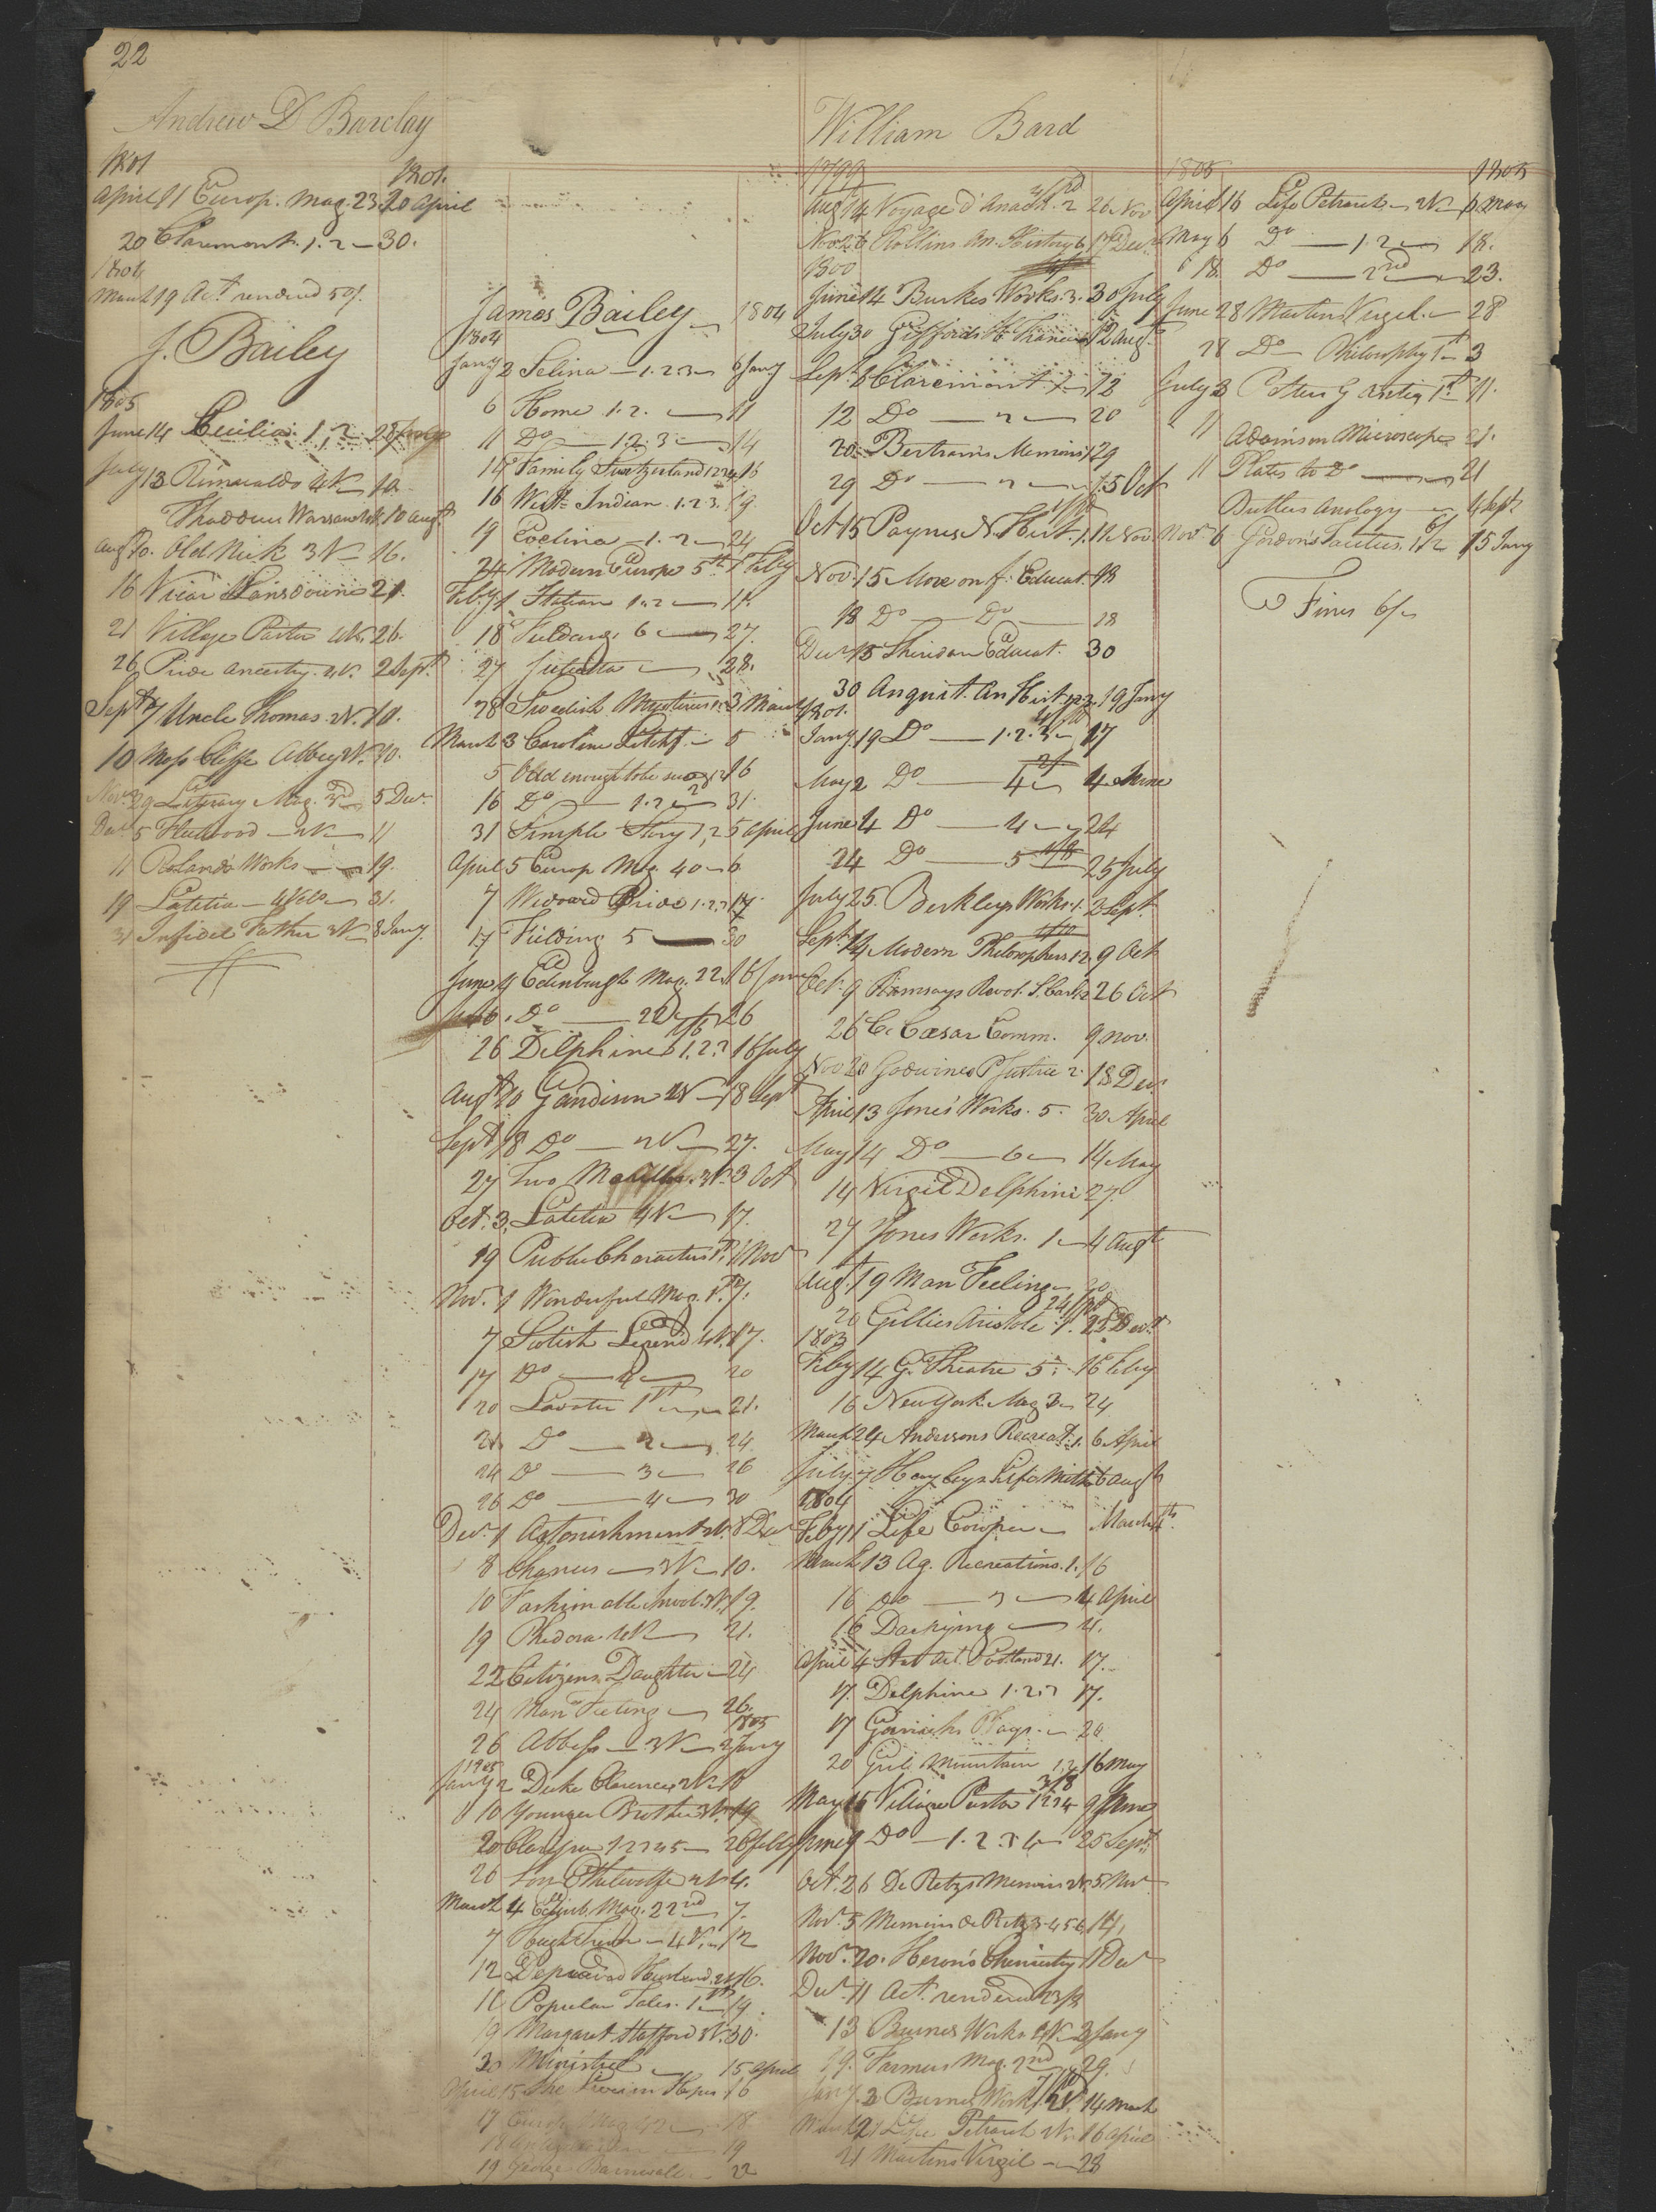 22
Andrew D Barclay
1801 1801.
April 11 Europ. Mag. 23. 20 April
20 Claremont. 1. 2 30.
March 19 Act. rendered 50/.
J. Bailey
1805
June 14 Cecilia 1, 2
July 13 Rimualdo 4V 10
Thaddeus Warsaw 4V. 10 Augt
Augt 10. Old Nick 3V 16.
16 Vicar Lansdowne 21.
21 Village Pastor 26.
26 Pride Ancestry. 4V. 2 Sept.
Sept 7 Uncle Thomas. 2V. 10.
10 Moss Cliffe Abbey 30.
Novr 29 Literary Mag. 3rd 5 Decr.
Decr 5 Fleetwood 2V 11
11 Rolands Works 19.
19 Letitia 4 Vols 31.
31 Infidel Father 3V 8 Jany.
James Bailey 1804
1804
Jany 2 Selina 1. 2 3 6 Jany
6 Home 1. 2. 11
11 Do 1. 2. 3 14
14 Family Switzerland 16
16 West Indian. 1. 2. 3. 19.
19 Evelina 1. 2 24
24 Modern Europe 5th 1 Feby
Feby. 1 Italian 1. 2 11.
18 Fieldang. 6 27.
27 Julietta 28.
28 Swedish Mysteries 3 March
March 3 Caroline Litchf. 5
5 Old enough to be 16
16 Do 1. 2 31.
31 Simple Story 1, 2 5 April
April 5 Europ Mag. 40 6
7 Wedward Pride 1. 2. 17
17 Fielding 5 30
June 4 Edinburgh Mag. 22. 16 June
16. Do 22 26
26 Delphine 1. 2. 3 16 July
Augt 10 Gandison 2V 18 Sept
Sept 18 Do 2V 27.
27 Two 3 Oct
Oct. 3. Letitia 4V 17.
19 Public Characters 1st. 1 Nov
Nov. 1 Wonderful Mag. 1st. 7.
7 Scotish Legend 4V. 17.
17 Do 4 20
20 Lavater 1st 21.
21 Do 2 24
24 Do 3 26
26 Do 4 30
Decr. 1 Astonishment 2V. 8 Decr
8 Chances 3V 10.
10 Fashionable Invol. 3V. 19.
19 Phedora 4V 21.
22 Citizens Daughter 24
24 Man Feeling 26.
1805
26 Abbess 3V 2 Jany
1805
Jany 2 Duke Clarence 2V 10
10 Younger Brother 3V. 19
20 Clarissa 1 2 3 4 5 26 Feby
26 Son Ethelwolfe 2V 4.
March 4 Edinb. Mag. 22nd 7.
7 Hugh Trevor 4V. 12
12 Depraved Husband. 2V 16.
16 Popular Tales. 1st 19.
19 Margaret Stafford 3V. 30.
30 Minstrel 15 April
April 15 The 16
17 18
19
19 George Barnwell 22
William Bard
1799
Aug 14 Voyage d'Anach. 2 26 Nov
Nov 26 Rollins An. History 6 17 Decr
1800
June 14 Burkes Works. 3. 30 July
July 30 Giffords H. France 12 Aug
Sept. 6 Claremont 1 12
12 Do 2 20
20 Bertrams Memoirs 1 29
29 Do 2 15 Oct
Oct 15 Paynes N. Hist. 1. 14 Nov
Nov. 15 More on f. Educat. 18
18 Do Do 18
Decr 15 Sheridan Educat. 30
30 Anquit. An Hist. 1. 2. 3. 19 Jany
1801.
Jany. 19 Do 1. 2. 3 27
May 2 Do 4 4 June
June 4 Do 4 24
24 Do 5 25 July
July 25. Berkleys Works. 1. 2 Sept.
Sept 14 Modern Philosophers 1 2. 9 Oct
Oct. 9 Ramsays Revol. S. Carl. 2 26 Oct
26 C. Cæsar Comm. 9 Nov.
Nov 20 Godwines P. Justice 2. 18 Decr
April 13 Jones' Works. 5. 30 April
May 14 Do 6 14 May
14 Virgil Delphini 27.
27 Jones Works. 1 4 Augt
Augt. 19 Man Feeling 20
20 Gillies Aristole. 1. 23 Decr.
1803
Feby 14 G. Theatre 5. 16 Feby
16 New York Mag 3 24
March 24 Andersons Recreat. 1. 6 April
July. 7 Hayleys Life Milt. 16 Augt
1804
Feby 11 Life Cowper March
March 13 Ag. Recreations. 1. 16
16 Do 3 4 April
16 4.
April 4 Stat Act. Scotland 21. 17.
17. Delphine 1. 2. 3 17.
17 Garricks Plays 20
20 Mountain 1, 2 16 May
May 16 Village Pastor 1 2 3 4 9 June
June 9 Do 1. 2 3 4 25 Sept.
Oct. 26 De Retzs Memoirs 2V. 5 Nov
Nov. 5 Memoirs de Retz 3. 4 5 6. 14.
Nov. 20. Heron's Chemistry 11 Decr
Decr. 11 Act. rendered 23/8
13 Burnes Works 2V 2 Jany
19. Farmers Mag. 2nd 29.
Jany. 2 Burnes Works 14 March
March 21 Life Petrarch 2V 16 April
21 Martins Virgil 28
1805 1805
April 16 Life Petrarch 2V 6 May
May 6 Do 1. 2 18.
18. Do 2nd 23.
June 28 Martins Virgil. 28
28 Do Philosophy 1st 3
July 3 Potters G Antiq 1st 11.
11 Adamson Microscope 21.
11 Plates to Do 21
Butlers Anology 4 Sept
Novr 6 Gordon's Tacitus. 1. 2 15 Jany
Fines 6/